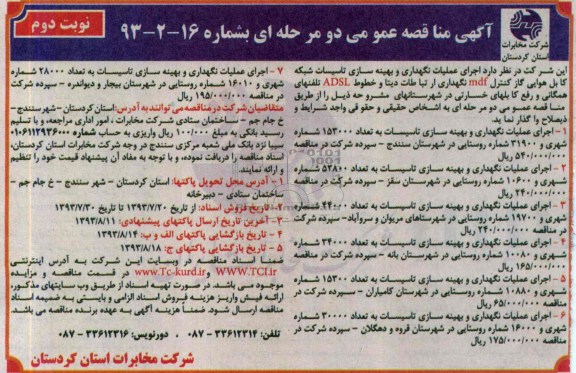 نوبت دوم
آگهی مناقصه عمومی دو مرحله ای بشماره ۱۶-۲-۹۳
شرکت مخابرات
استان کردستان
این شرکت در نظر دارد اجرای عملیات نگهداری و بهینه سازی تاسیسات شبکه
کابل هوایی گاز کنترل mdf نگهداری ارتباطات دیتا و خطوط ADSL تلفنهای
همگانی و رفع کابل بلهای خسارتی در شهرستانهای مشروحه ذیل را از طریق
مناقصه عمومی دو مرحله ای به اشخاص حقیقی و حقوقی واجد شرایط و
ذیصلاح واگذار نماید.
۱- اجرای عملیات نگهداری و بهینه سازی تاسیسات به تعداد ۱۵۳۰۰۰ شماره
شهری و ۳۱۹۰۰ شماره روستایی در شهرستان سنندج - سپرده شرکت در مناقصه
۵۴۰/۰۰۰/۰۰۰ ریال
۲- اجرای عملیات نگهداری و بهینه سازی تاسیسات به تعداد ۵۲۸۰۰ شماره
شهری و ۱۰۶۰۰ شماره روستایی در شهرستان سقز - سپرده شرکت در مناقصه
۲۴۰/۰۰۰/۰۰۰ ریال
۳- اجرای عملیات نگهداری و بهینه سازی تاسیسات به تعداد ۴۴۰۰۰ شماره
شهری و ۱۹۷۰۰ شماره روستایی در شهرستانهای مریوان و سروآباد- سپرده شرکت
در مناقصه ۲۴۰/۰۰۰/۰۰۰ ریال
۴- اجرای عملیات نگهداری و بهینه سازی تاسیسات به تعداد ۳۴۰۰۰ شماره
شهری و ۱۰۰۸۰ شماره روستایی در شهرستان بانه - سپرده شرکت در مناقصه
۱۶۵/۰۰۰/۰۰۰ ریال
۵- اجرای عملیات نگهداری و بهینه سازی تاسیسات به تعداد ۱۵۳۰۰ شماره
شهری و ۱۰۸۸۰ شماره روستایی در شهرستان کامیاران - سپرده شرکت در
مناقصه ۶۵/۰۰۰/۰۰۰ ریال
۶- اجرای عملیات نگهداری و بهینه سازی تاسیسات به تعداد ۳۰۰۰۰ شماره
شهری و ۱۶۰۰۰ شماره روستایی در شهرستان قروه و دهگلان - سپرده شرکت در
مناقصه ۱۷۵/۰۰۰/۰۰۰ ریال
۷- اجرای عملیات نگهداری و بهینه سازی تاسیسات به تعداد ۲۸۰۰۰ شماره
شهری و ۱۶۰۱۰ شماره روستایی در شهرستان بیجار و دیواندره - سپرده شرکت
در مناقصه ۱۹۵/۰۰۰/۰۰۰ ریال
متقاضیان شرکت در مناقصه می توانند به آدرس: استان کردستان - شهر سنندج -
خ جام جم - ساختمان ستادی شرکت مخابرات، امور اداری مراجعه، و با تسلیم
رسید بانکی به مبلغ ۱۰۰/۰۰۰ ریال واریزی به حساب شماره ۰۱۰۶۱۱۲۹۳۶۰۰۰
سیبا نزد بانک ملی شعبه مرکزی سنندج در وجه شرکت مخابرات استان کردستان،
اسناد مناقصه را دریافت نموده، و با توجه به مفاد آن پیشنهاد قیمت خود را تنظیم
و ارائه نمایند.
۱- آدرس محل تحویل پاکتها: استان کردستان - شهر سنندج - خ جام جم -
ساختمان ستادی - دبیرخانه
۲- تاریخ فروش اسناد: از تاریخ ۱۳۹۳/۷/۲۰ تا تاریخ ۱۳۹۳/۷/۳۰
۳- آخرین تاریخ ارسال پاکتهای پیشنهادی: ۱۳۹۳/۸/۱۱
۴- تاریخ بازگشایی پاکتهای الف و ب: ۱۳۹۳/۸/۱۴
۵- تاریخ بازگشایی پاکتهای ج: ۱۳۹۳/۸/۱۸
ضمناً اسناد مناقصه در وبسایت این شرکت به آدرس اینترنتی
WWW.TCI.ir و www.Tc-kurd.ir در قسمت مناقصه و مزایده
موجود می باشد. در صورت تهیه اسناد از طریق وب سایتهای مذکور،
ارائه فیش واریز هزینه فروش اسناد الزامی و بایستی به ضمیمه اسناد
مناقصه ارسال شود. ضمناً هزینه آگهی به عهده برنده مناقصه می باشد.
تلفن: ۳۳۶۱۲۳۱۴ - ۰۸۷، دورنویس: ۳۳۶۱۲۳۱۶ - ۰۸۷
شرکت مخابرات استان کردستان